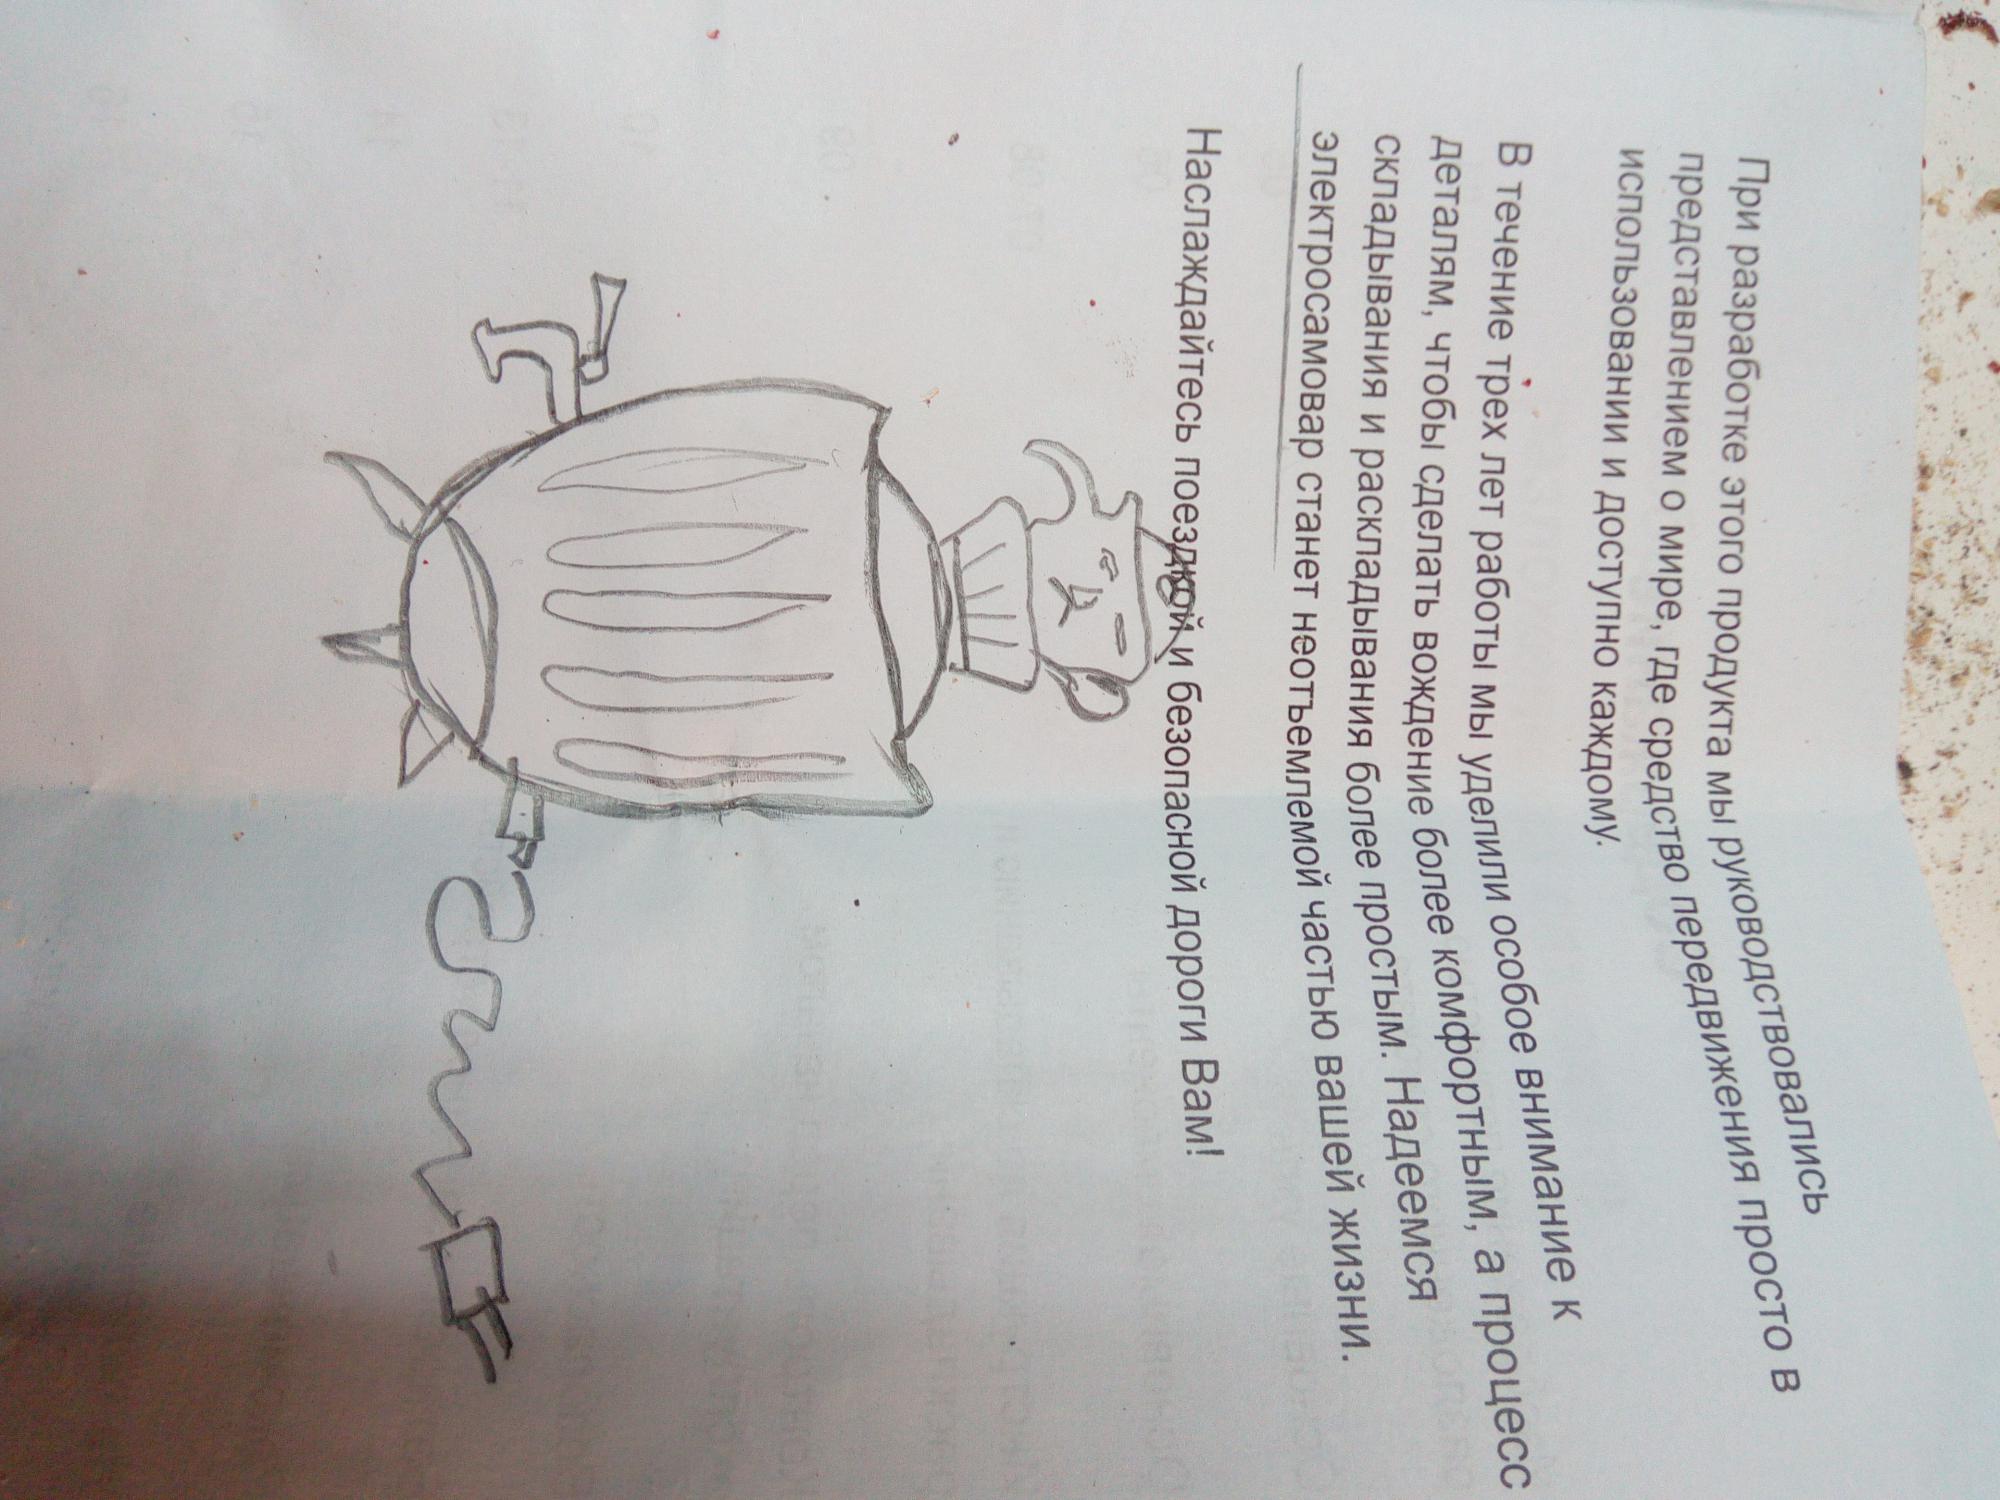 При разработке этого продукта мы руководствовались
представлением о мире, где средство передвижения просто в
использовании и доступно каждому.
В течение трех лет работы мы уделили особое внимание к
деталям, чтобы сделать вождение более комфортным, а процесс
складывания и раскладывания более простым. Надеемся
электросамовар станет неотъемлемой частью вашей жизни.
Наслаждайтесь поездкой и безопасной дороги Вам!